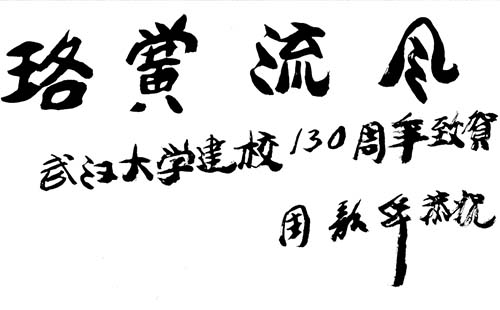 珞黉流风
武汉大学建校130周年致贺
周韶华恭祝